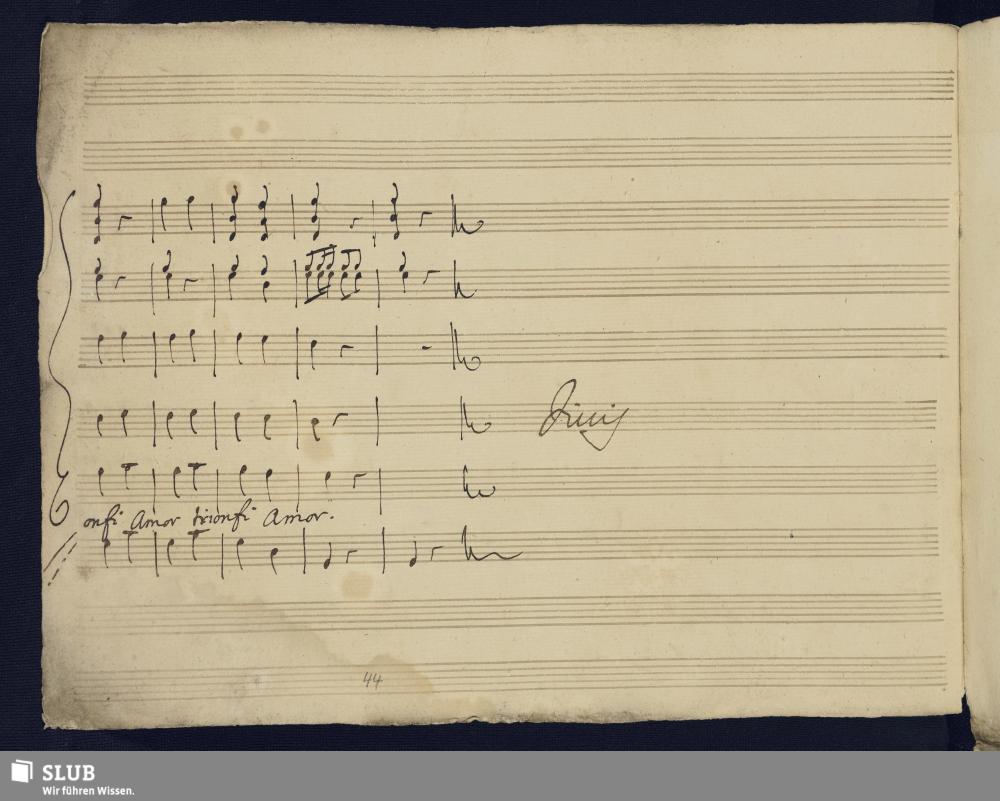 Finis
onfi Amor trionfi Amor.
44
SLUB
Wir führen Wissen.